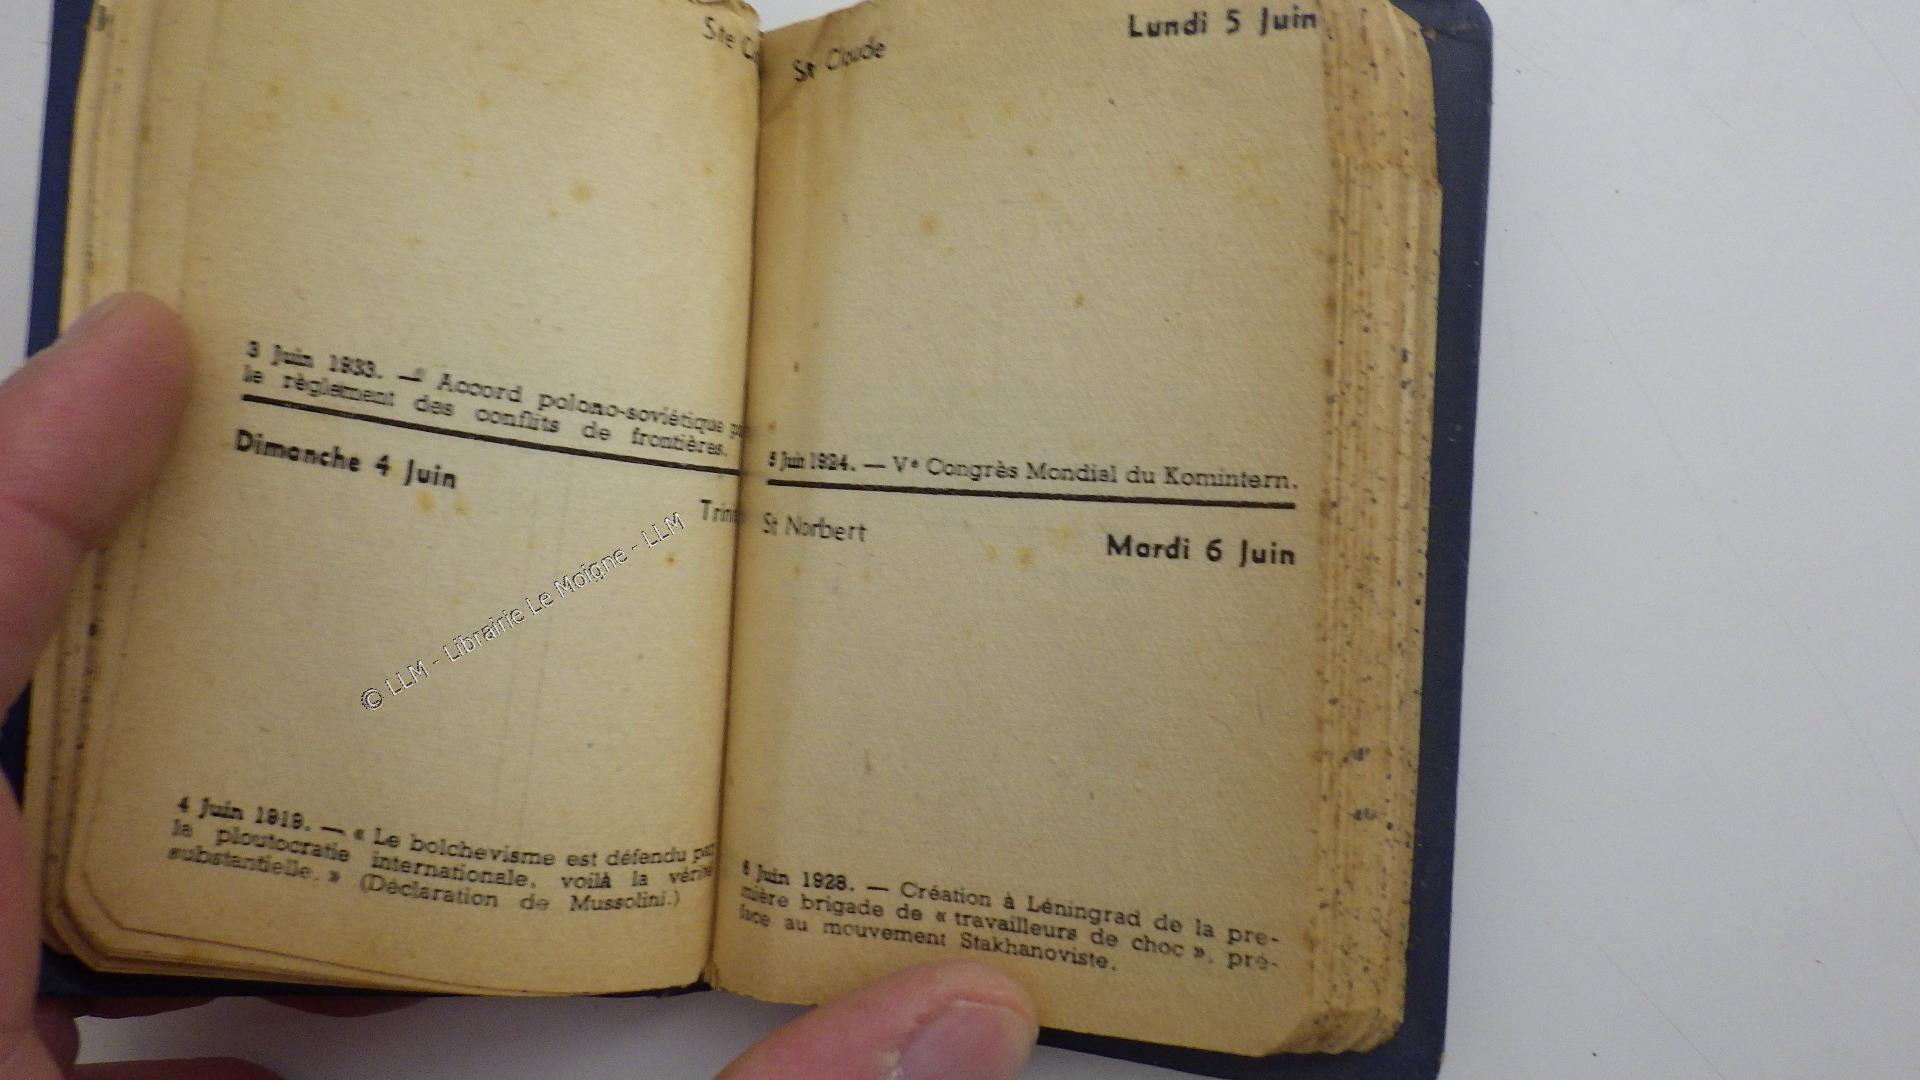 Ste
3 Juin 1933. — Accord polono-soviétique
le règlement des conflits de frontières.
Dimanche 4 Juin
4 Juin 1919. — « Le bolchevisme est défendu par
la ploutocratie internationale, voilà la vérité
substantielle. » (Déclaration de Mussolini.)
Lundi 5 Juin
Claude
5 Juin 1924. — Ve Congrès Mondial du Komintern.
St Norbert
Mardi 6 Juin
6 Juin 1928. — Création à Léningrad de la pre-
mière brigade de « travailleurs de choc », pré-
face au mouvement Stakhanoviste.
© LLM - Librairie Le Moigne - LLM